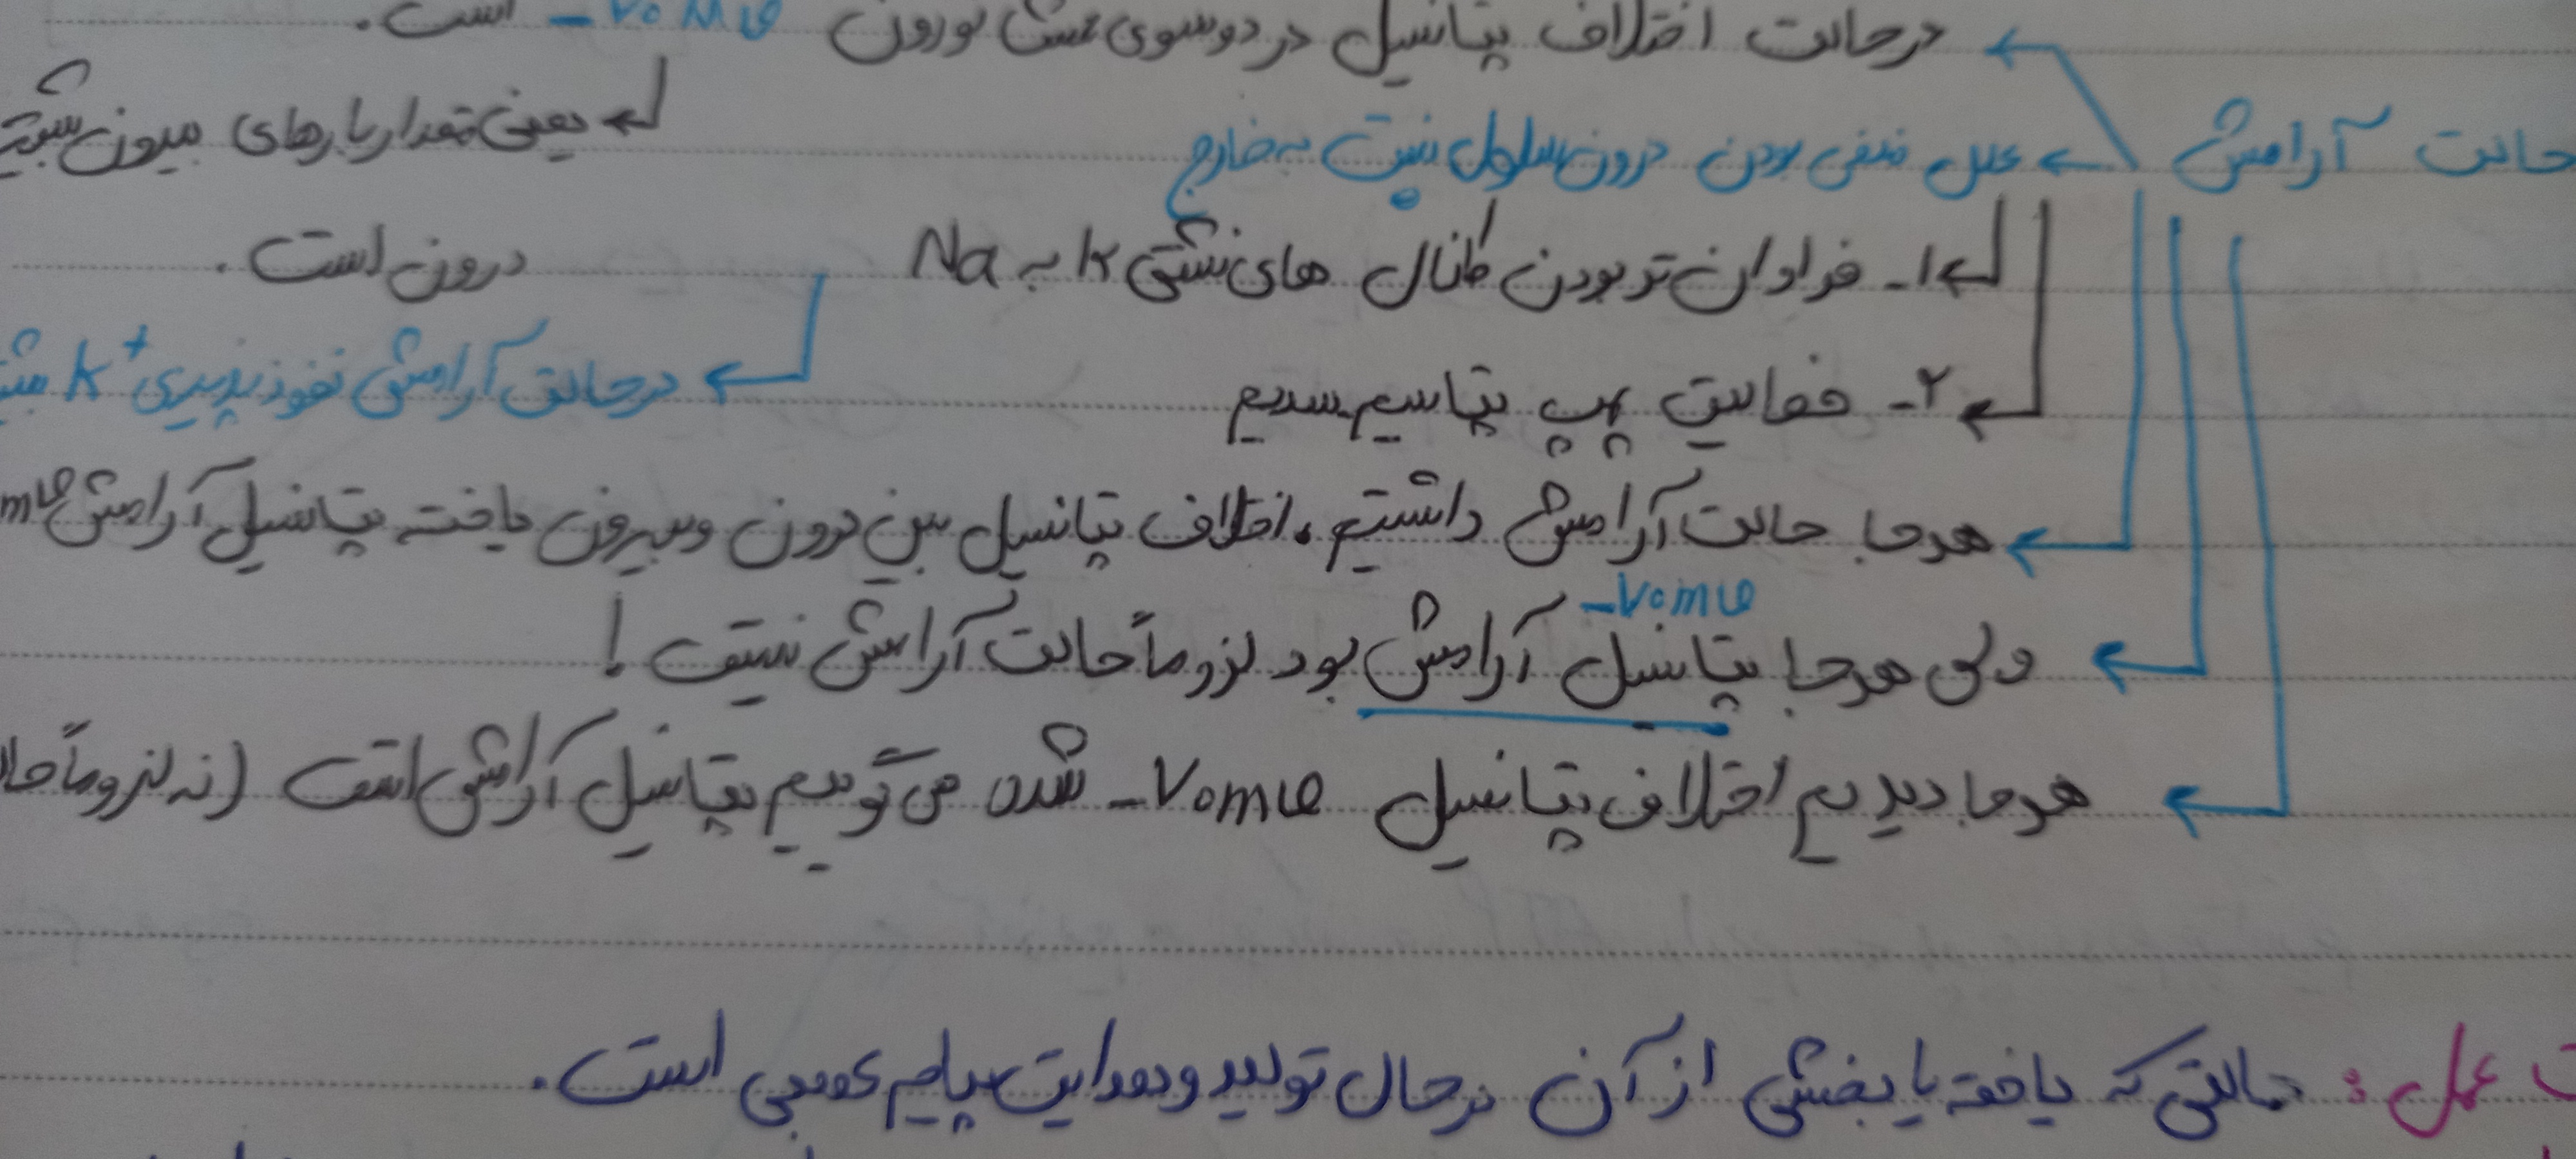 درحالت اختلاف پتانسیل در دوسوی غشا نورون -۷۰ mv است.
حالت آرامش
علل منفی بودن درون سلول نسبت به خارج
یعنی مقدار بارهای بیرون بیشتر
۱- فراوان تر بودن کانال های نشتی K به Na
درون است.
۲- فعالیت پمپ پتاسیم سدیم
درحالت آرامش نفوذپذیری K+
هرجا حالت آرامش داشتیم، اختلاف پتانسیل بین درون و بیرون یافته پتانسیل آرامش mv
-۷۰mv
ولی هرجا پتانسیل آرامش بود لزوماً حالت آرامش نیست!
هرجا دیدیم اختلاف پتانسیل -۷۰mv شده می گوییم پتانسیل آرامش است (نه لزوماً
عمل: حالتی که یاخته یا بخشی از آن درحال تولید و هدایت پیام عصبی است.